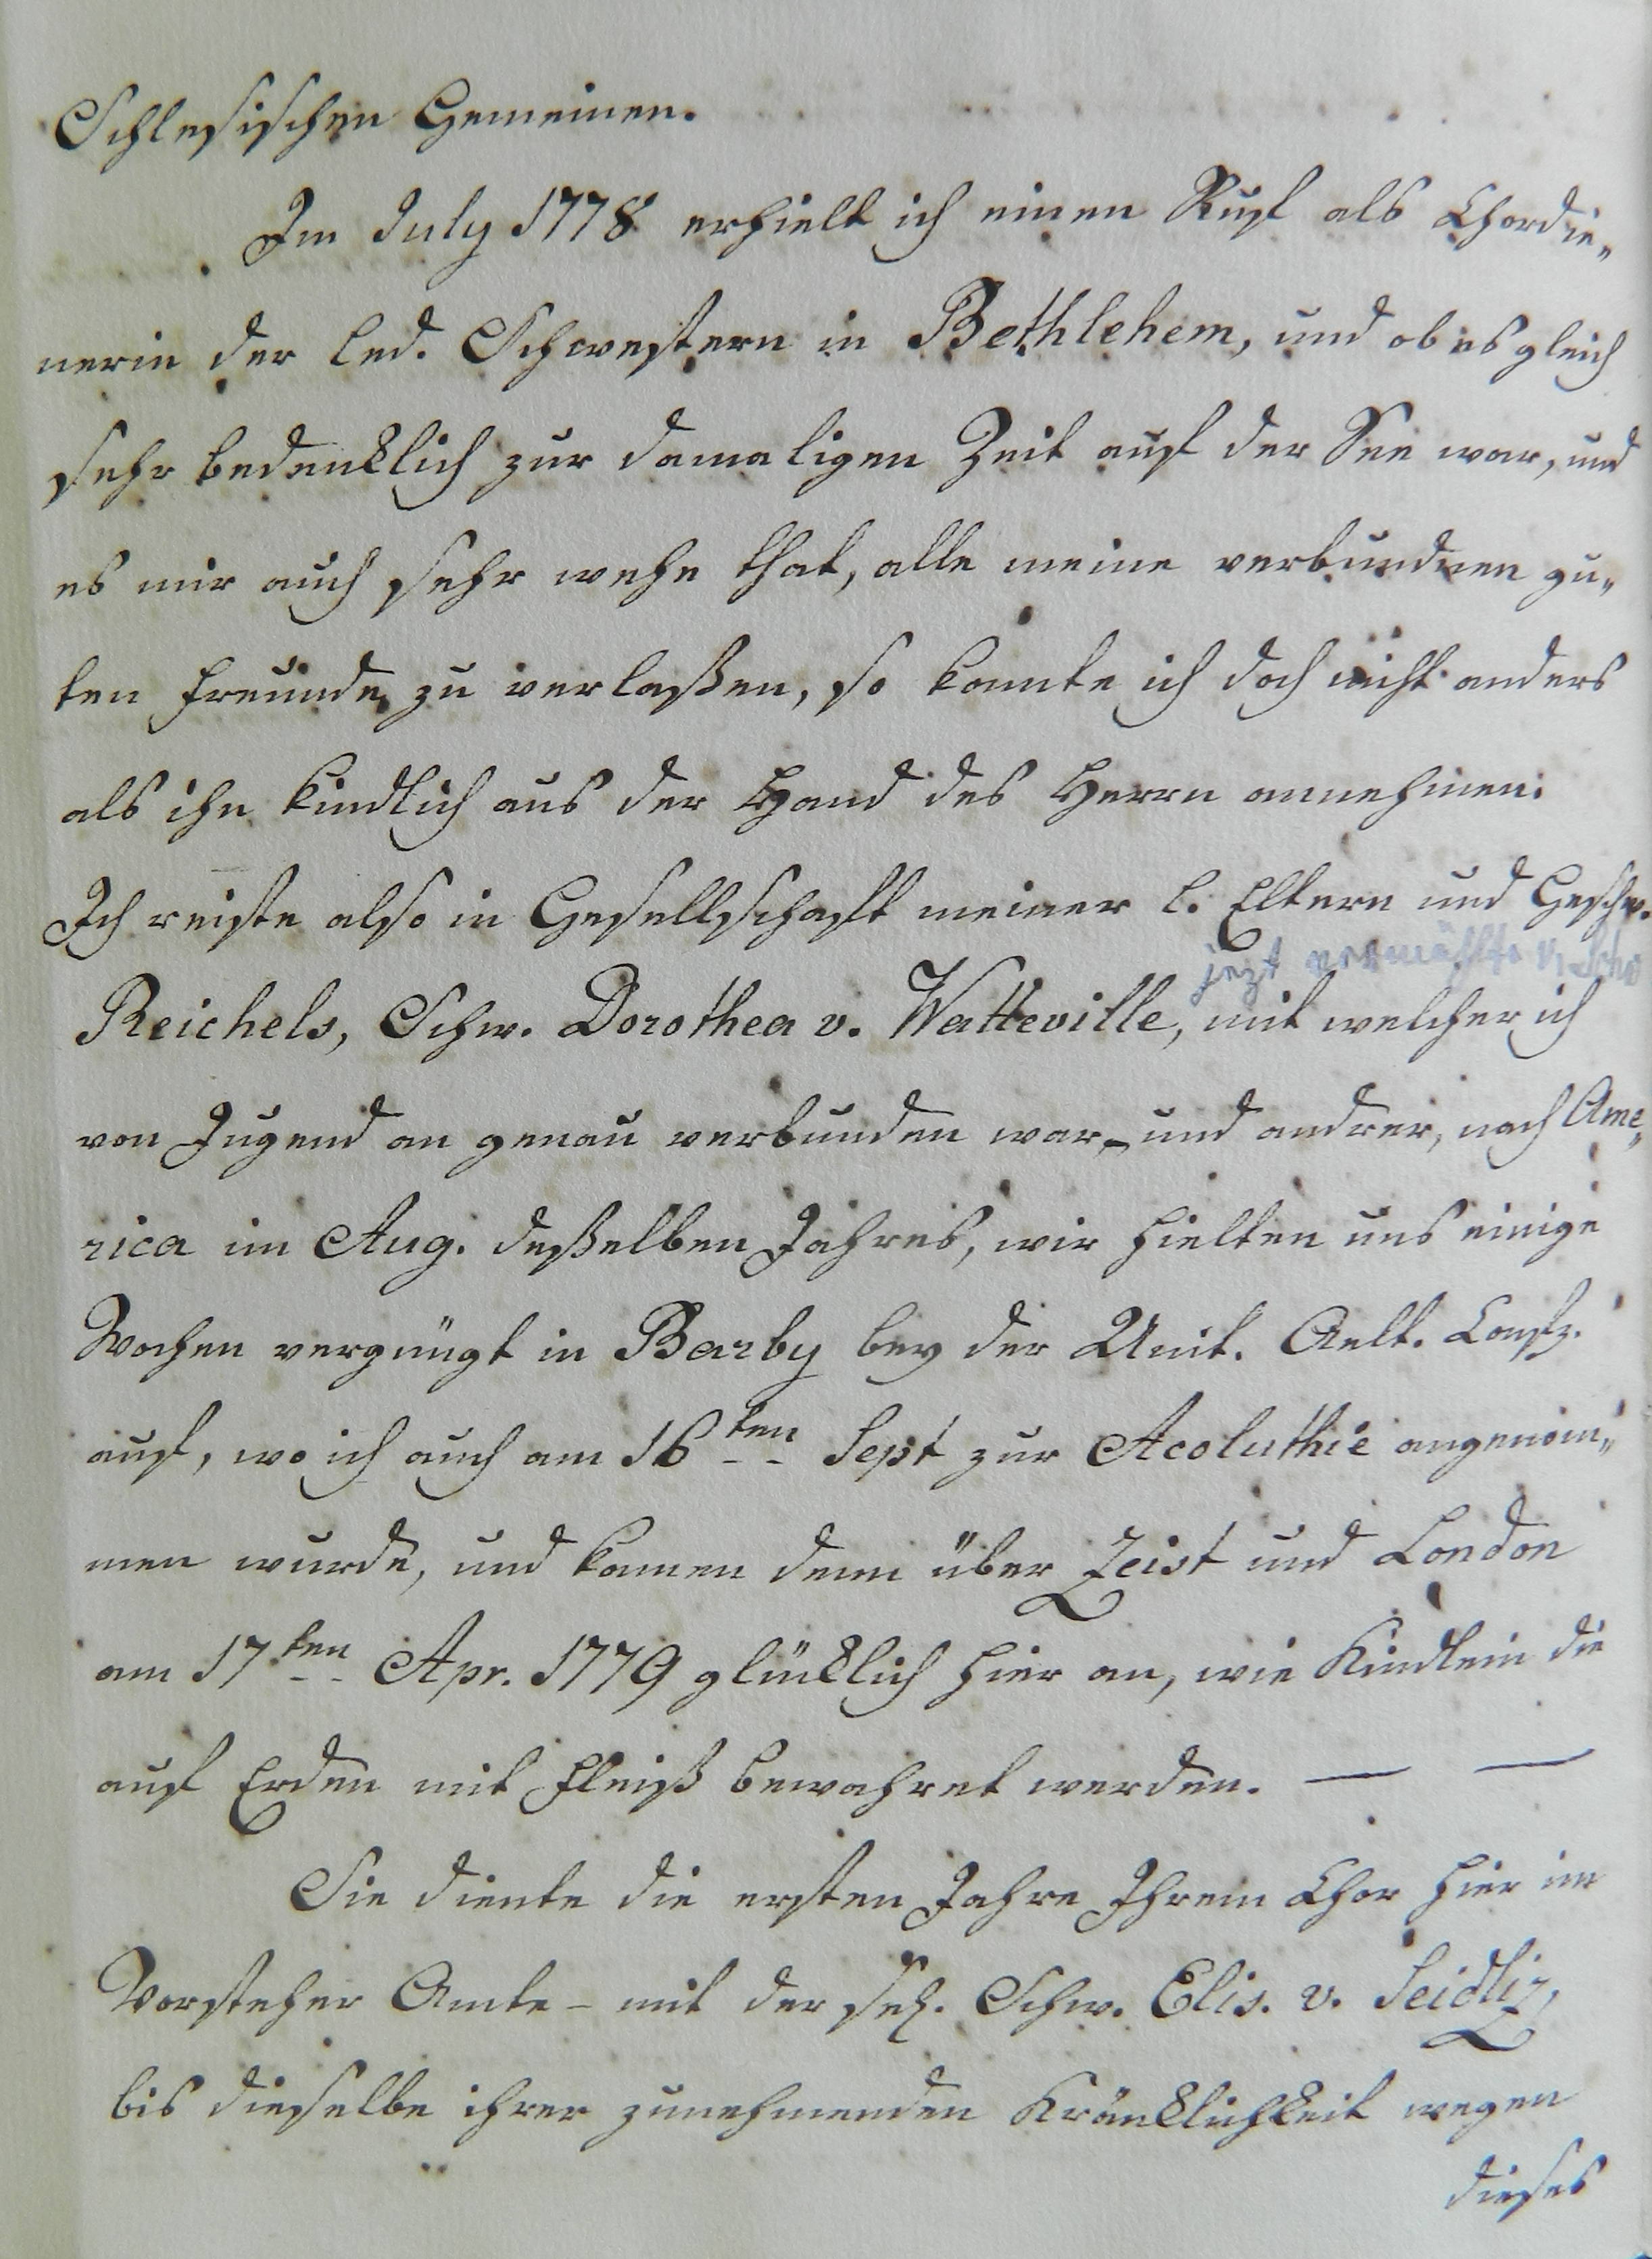 Schlesischen Gemeinen.
Im July 1778 erhielt ich einen Ruf als Chordie„
nerin der led. Schwestern in Bethlehem, und ob es gleich
sehr bedenklich zur damaligen Zeit auf der See war, und
es mir auch sehr wehe that, alle meine verbundnen gu„
ten Freunde zu verlaßen, so konnte ich doch nicht anders
als ihn kindlich aus der Hand des Herrn annehmen.
Ich reiste also in Gesellschaft meiner l. Eltern und Geschw.
jezt vermählte v. Schw
Reichels, Schw. Dorothea v. Watteville, mit welcher ich
von Jugend an genau verbunden war – und andrer, nach Ame„
rica im Aug. deßelben Jahres, wir hielten uns einige
Wochen vergnügt in Barby bey der Unit. Aelt. Confz.
auf, wo ich auch am 16ten Sept zur Acoluthie angenom„
men wurde, und kamen denn über Zeist und London
am 17ten Apr. 1779 glücklich hier an, wie Kindlein die
auf Erden mit Fleiß bewahret werden. — —
Sie diente die ersten Jahre Ihrem Chor hier im
Vorsteher Amte – mit der sel. Schw. Elis. v. Seidliz,
bis dieselbe ihrer zunehmenden Kränklichkeit wegen
dieses